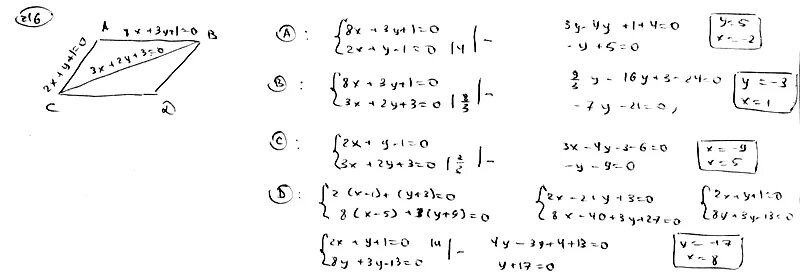 216
A 8x+3y+1=0 B
2x+y+1=0
3x+2y+3=0
C D
A : { 8x + 3y+1=0
2x + y-1=0 |4 | -
3y-4y +1+4=0
-y+5=0
y=5
x=-2
B : { 8x + 3y+1=0
3x + 2y+3=0 | 8/3 | -
-7y-21=0,
y = -3
x = 1
C : { 2x + y-1=0
3x + 2y+3=0 | -
3x-4y-3-6=0
-y-9=0
x=-9
x=5
D : { 2(x-1)+(y+3)=0
8(x-5)+3(y+9)=0
8x-40+3y+27=0
{ 2x+y+1=0
8y+3y-13=0
{ 2x+y+1=0 |4 | -
8y+3y-13=0
4y-3y+4+13=0
y+17=0
y=-17
x=8